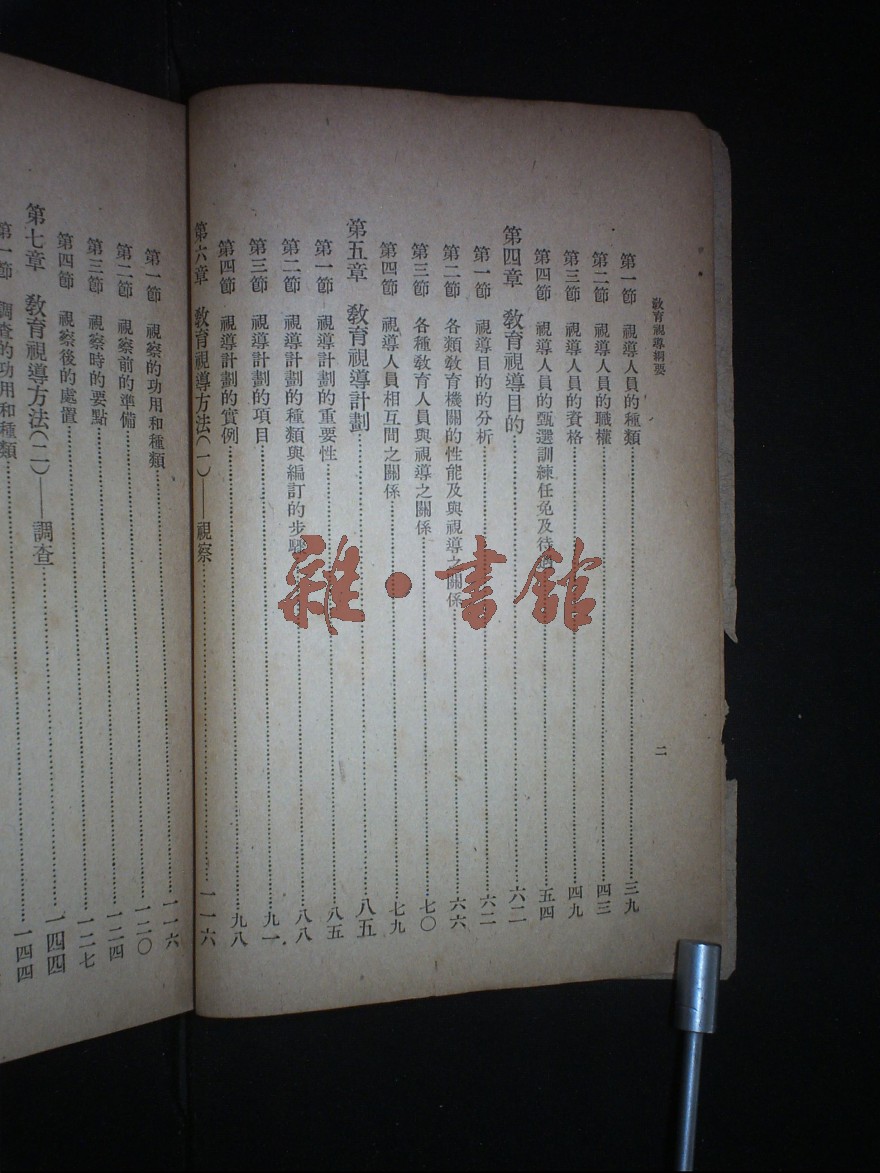 教育視導綱要
二
第一節 視導人員的種類……三九
第二節 視導人員的職權……四三
第三節 視導人員的資格……四九
第四節 視導人員的甄選訓練任免及待遇……五四
第四章 教育視導目的……六二
第一節 視導目的的分析……六二
第二節 各類教育機關的性能及與視導之關係……六六
第三節 各種教育人員與視導之關係……七〇
第四節 視導人員相互間之關係……七九
第五章 教育視導計劃……八五
第一節 視導計劃的重要性……八五
第二節 視導計劃的種類與編訂的步驟……八八
第三節 視導計劃的項目……九一
第四節 視導計劃的實例……九八
第六章 教育視導方法(一)——視察……一一六
第一節 視察的功用和種類……一一六
第二節 視察前的準備……一二〇
第三節 視察時的要點……一二四
第四節 視察後的處置……一二七
第七章 教育視導方法(二)——調查……一四四
第一節 調查的功用和種類……一四四
雜·書館